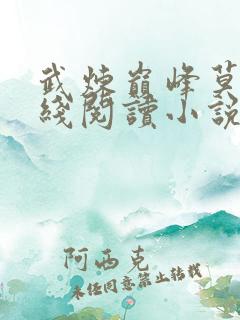 武炼巅峰莫
綫閱讀小説
阿西克
未经同意禁止转载